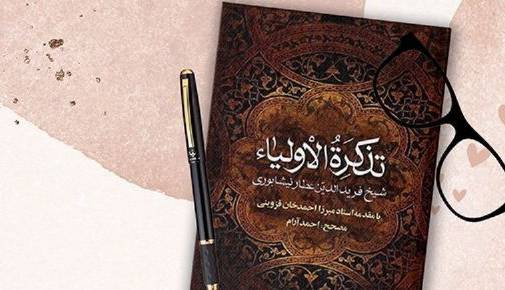 تذكرة الأولیاء
شیخ فریدالدین عطار نیشابوری
با مقدمه استاد میرزا احمدخان قزوینی
مصحح: احمد آرام